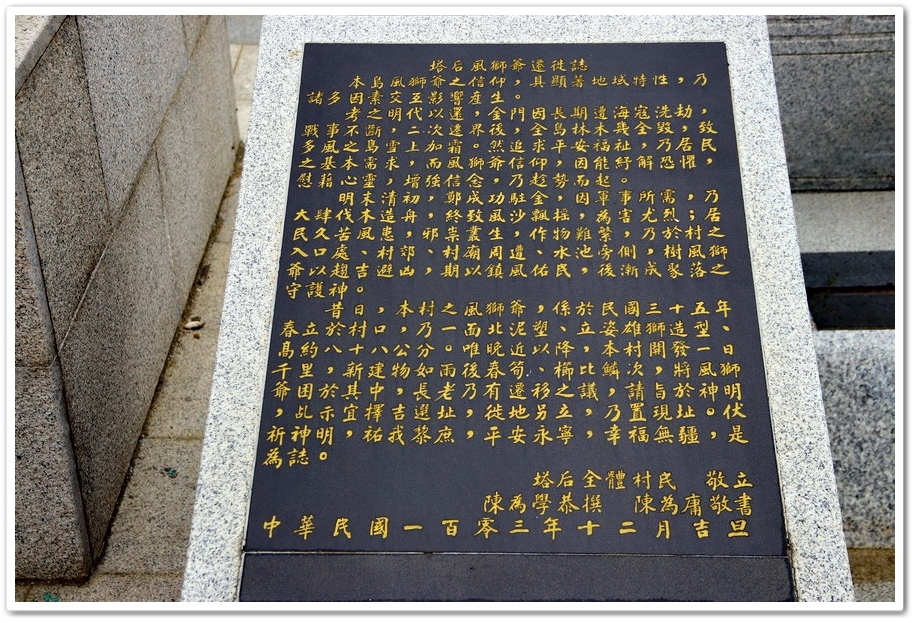 塔后風獅爺遷徙誌
本島風獅爺之信仰，具顯著地域特性，乃
諸多因素交互影響產生。
考之明代以還，金門因長期遭海寇洗劫，
戰事不斷，二次遷界。後全島林木幾全毀，致
多風之島雪上加霜。然追求平安福祉，乃居民
之基本需求，而風獅爺信仰因能紓解恐懼，
慰藉心靈，增強信念，乃趁勢而起。
明末清初，鄭成功駐金，因軍事所需，乃
大肆伐木造舟，終致風沙飄搖，為害尤烈；居
民久苦風患，邪祟叢生，作物難繁，乃於村之
入口處、村郊、廟周遭、水池旁側樹風獅
爺以趨吉避凶，期以鎮風佑民，後漸成聚落之
守護神。
昔日，本村之風獅爺，係於民國三十五年
春立於村口，乃一面北泥塑、立姿雄獅造型、
高約八十八公分。唯晚近以降，本村開發一日
千里，新建物如雨後春筍、櫛比鱗次，將風獅
爺困於其中，長老乃有遷移之議，請旨於神明
，乩示宜擇吉選址徙地另立，乃置現址。伏
祈神明，祐我黎庶，平安永寧，幸福無疆，是
為誌。
塔后全體村民 敬立
陳為學恭撰 陳為庸敬書
中華民國一百零三年十二月吉旦